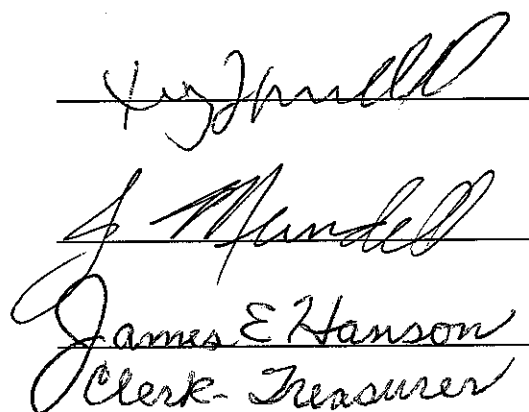 J Mundell
James E Hanson
Clerk-Treasurer